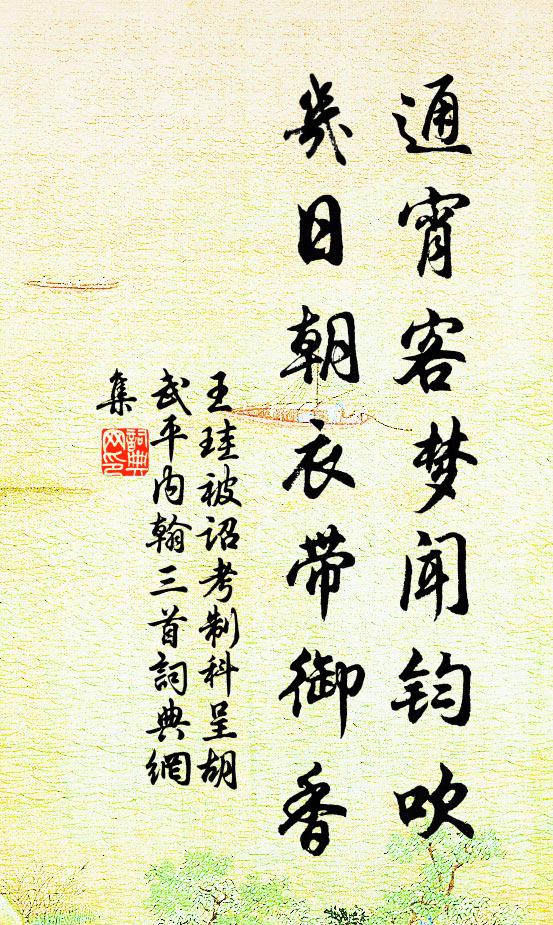 通宵客梦闻钧吹
幾日朝衣带御香
王珪被诏考制科呈胡
武平内翰三首詞典網
集
詞典网印